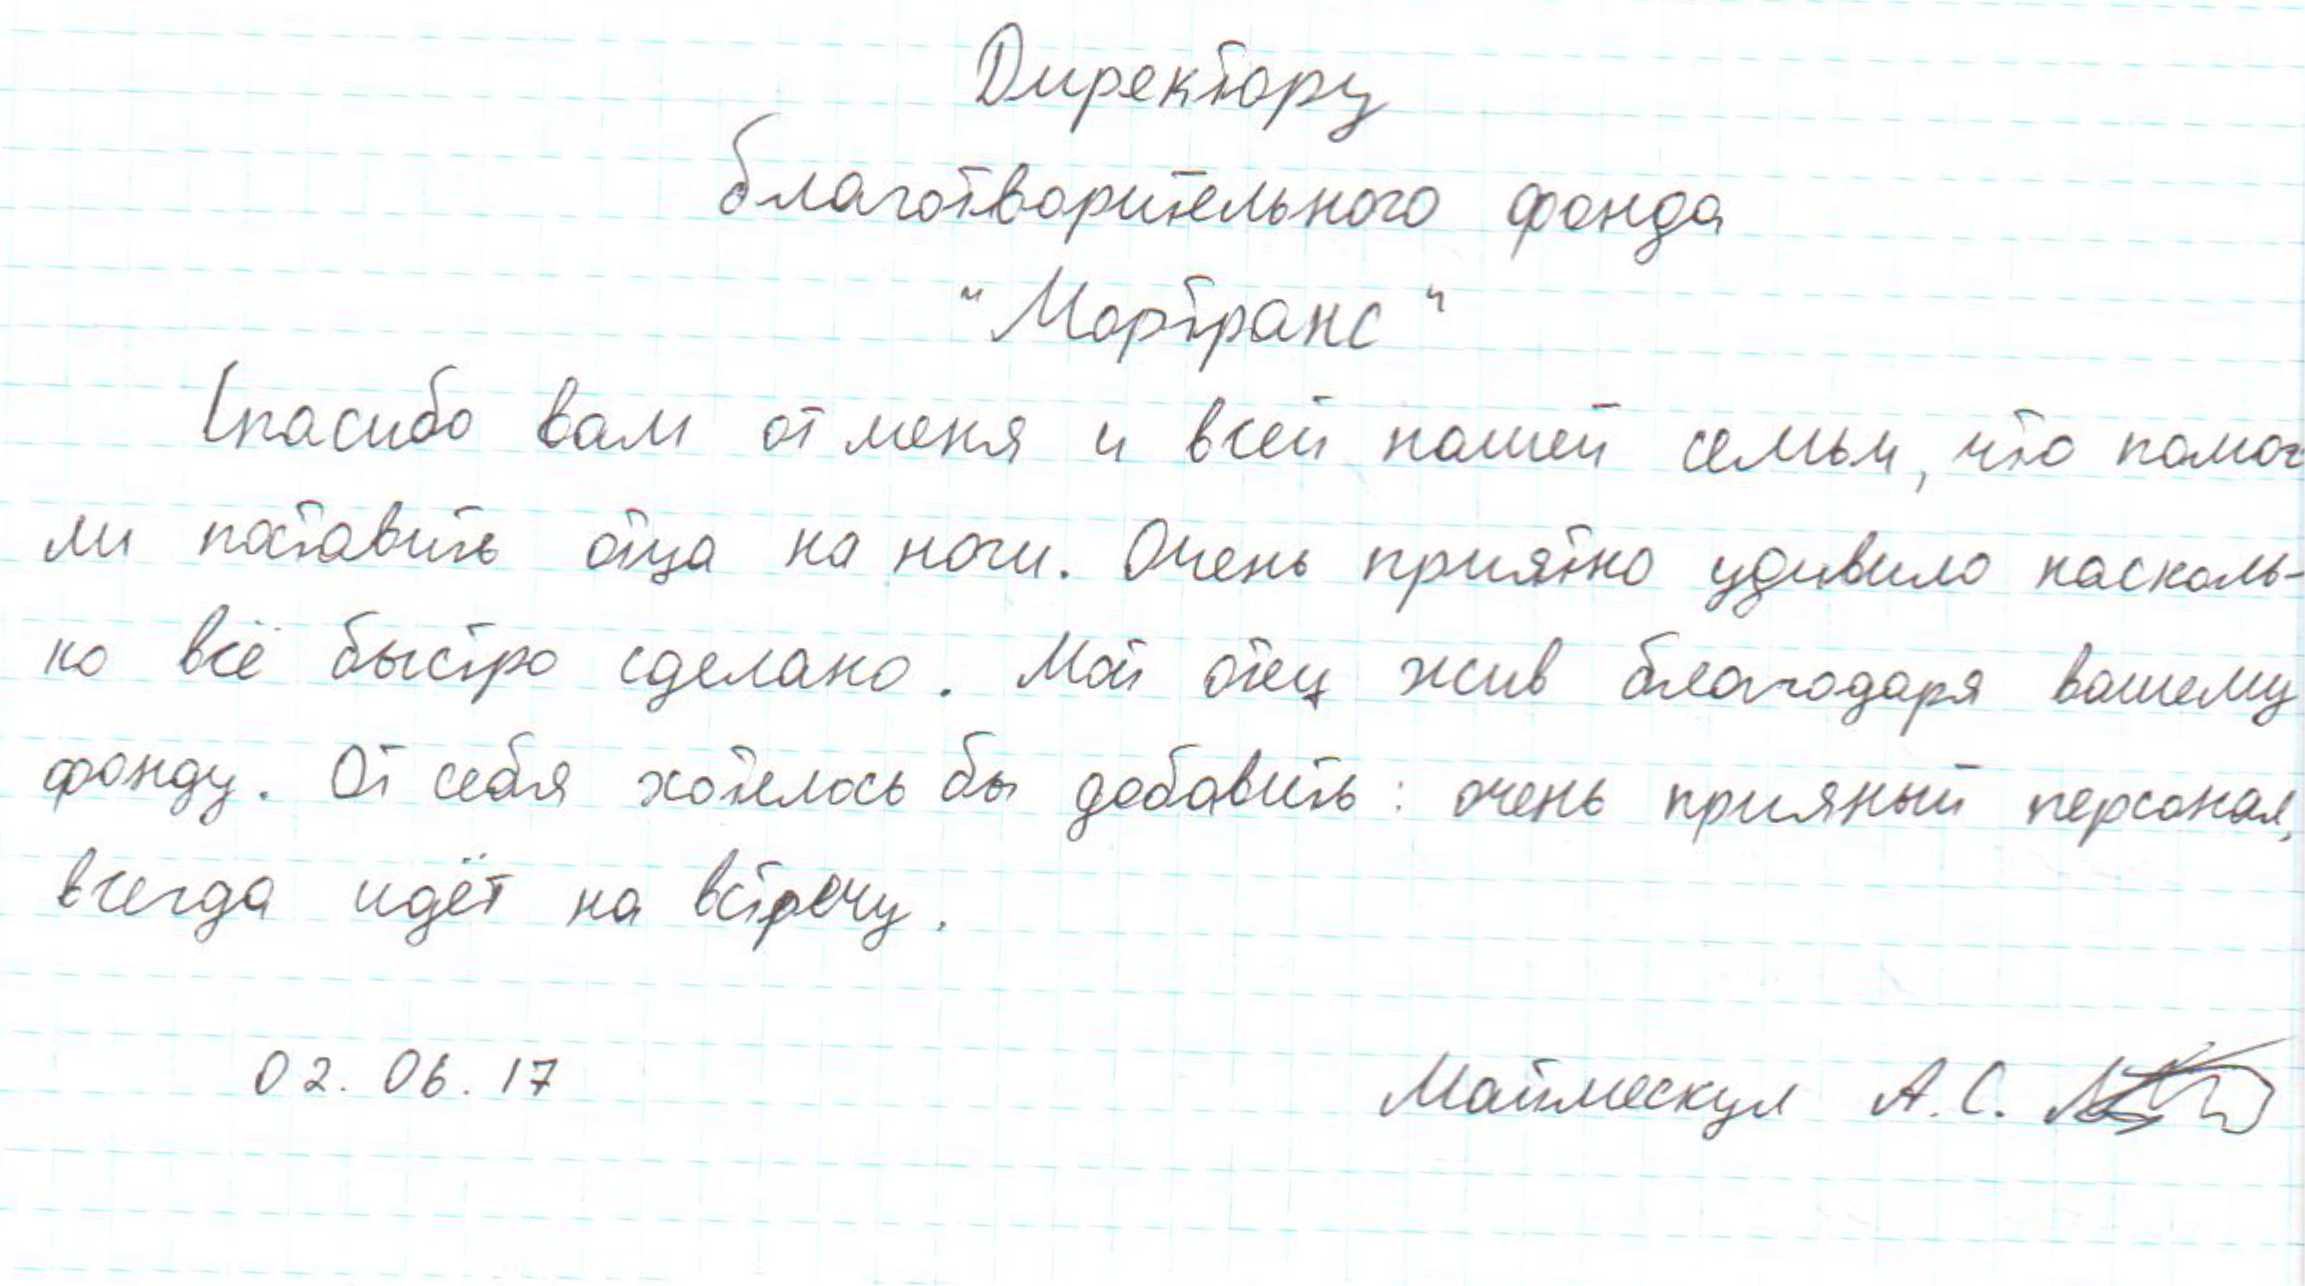 Директору
благотворительного фонда
"Мортранс"
Спасибо вам от меня и всей нашей семьи, что помог
ли поставить отца на ноги. Очень приятно удивило насколь-
ко всё быстро сделано. Мой отец жив благодаря вашему
фонду. От себя хотелось бы добавить: очень прияный персонал,
всегда идёт на встречу.
02.06.17 Маймескул А.С.